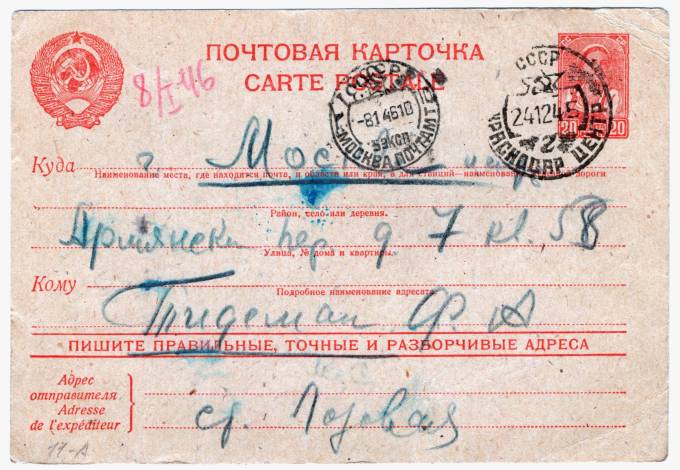 ПОЧТОВАЯ КАРТОЧКА
CARTE POSTALE
8/I 46
СССР
-814610
МОСКВА ПОЧТАМТ
СССР
241245
2
КРАСНОДАР ЦЕНТР
20 20
Куда г. Москва
Наименование места, где находится почта, и области или края, а для станций—наименование дороги
Район, село или деревня.
Армянский пер д 7 кв. 58
Улица, № дома и квартиры.
Кому
Подробное наименование адресата
Тидеман Ф. А
ПИШИТЕ ПРАВИЛЬНЫЕ, ТОЧНЫЕ И РАЗБОРЧИВЫЕ АДРЕСА
Адрес
отправителя
Adresse
de l'expéditeur
ст. Лозовая
17-А